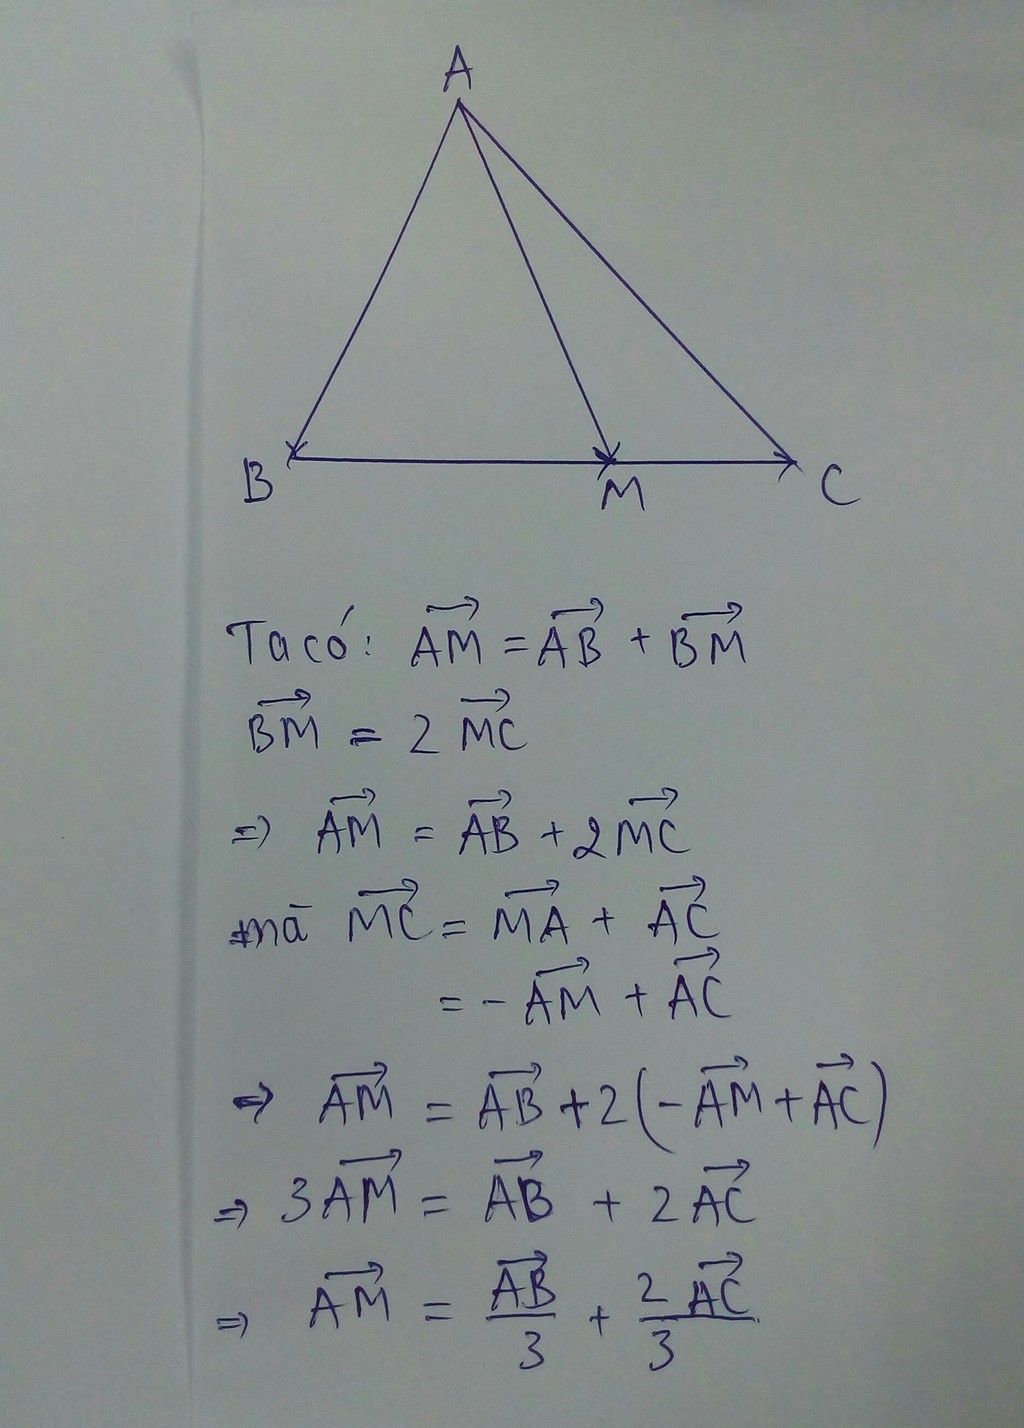 A
B
M
C
Ta có: $\overrightarrow{AM} = \overrightarrow{AB} + \overrightarrow{BM}$
$\overrightarrow{BM} = 2\overrightarrow{MC}$
$\Rightarrow \overrightarrow{AM} = \overrightarrow{AB} + 2\overrightarrow{MC}$
mà $\overrightarrow{MC} = \overrightarrow{MA} + \overrightarrow{AC}$
$= -\overrightarrow{AM} + \overrightarrow{AC}$
$\Rightarrow \overrightarrow{AM} = \overrightarrow{AB} + 2(-\overrightarrow{AM} + \overrightarrow{AC})$
$\Rightarrow 3\overrightarrow{AM} = \overrightarrow{AB} + 2\overrightarrow{AC}$
$\Rightarrow \overrightarrow{AM} = \frac{\overrightarrow{AB}}{3} + \frac{2\overrightarrow{AC}}{3}$